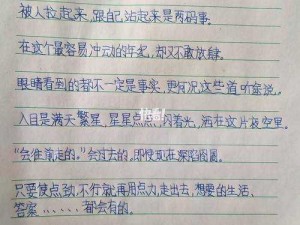 被人拉起来,跟自己站起来是两码事.
在这个最容易冲动的年纪,却又不敢放肆.
眼睛看到的都不一定是事实,更何况这些道听途说.
入目是满天繁星,星星点点,闪着光,洒在这片夜空里.
“会往前走的。”会过去的,即使现在深陷囹圄。
只要使点劲,不行就再用点力,走出去,想要的生活、
答案、、、、、、都会有的.